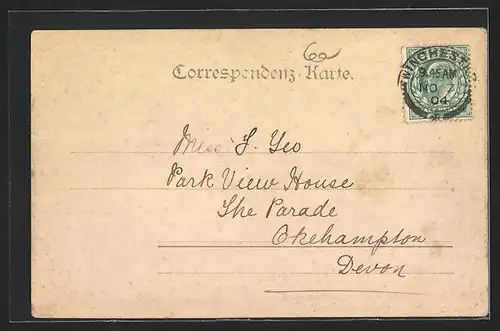 60
Correspondenz-Karte.
WINCHESTER
9.45AM
NO 7
04
Miss J. Yeo
Park View House
The Parade
Okehampton
Devon